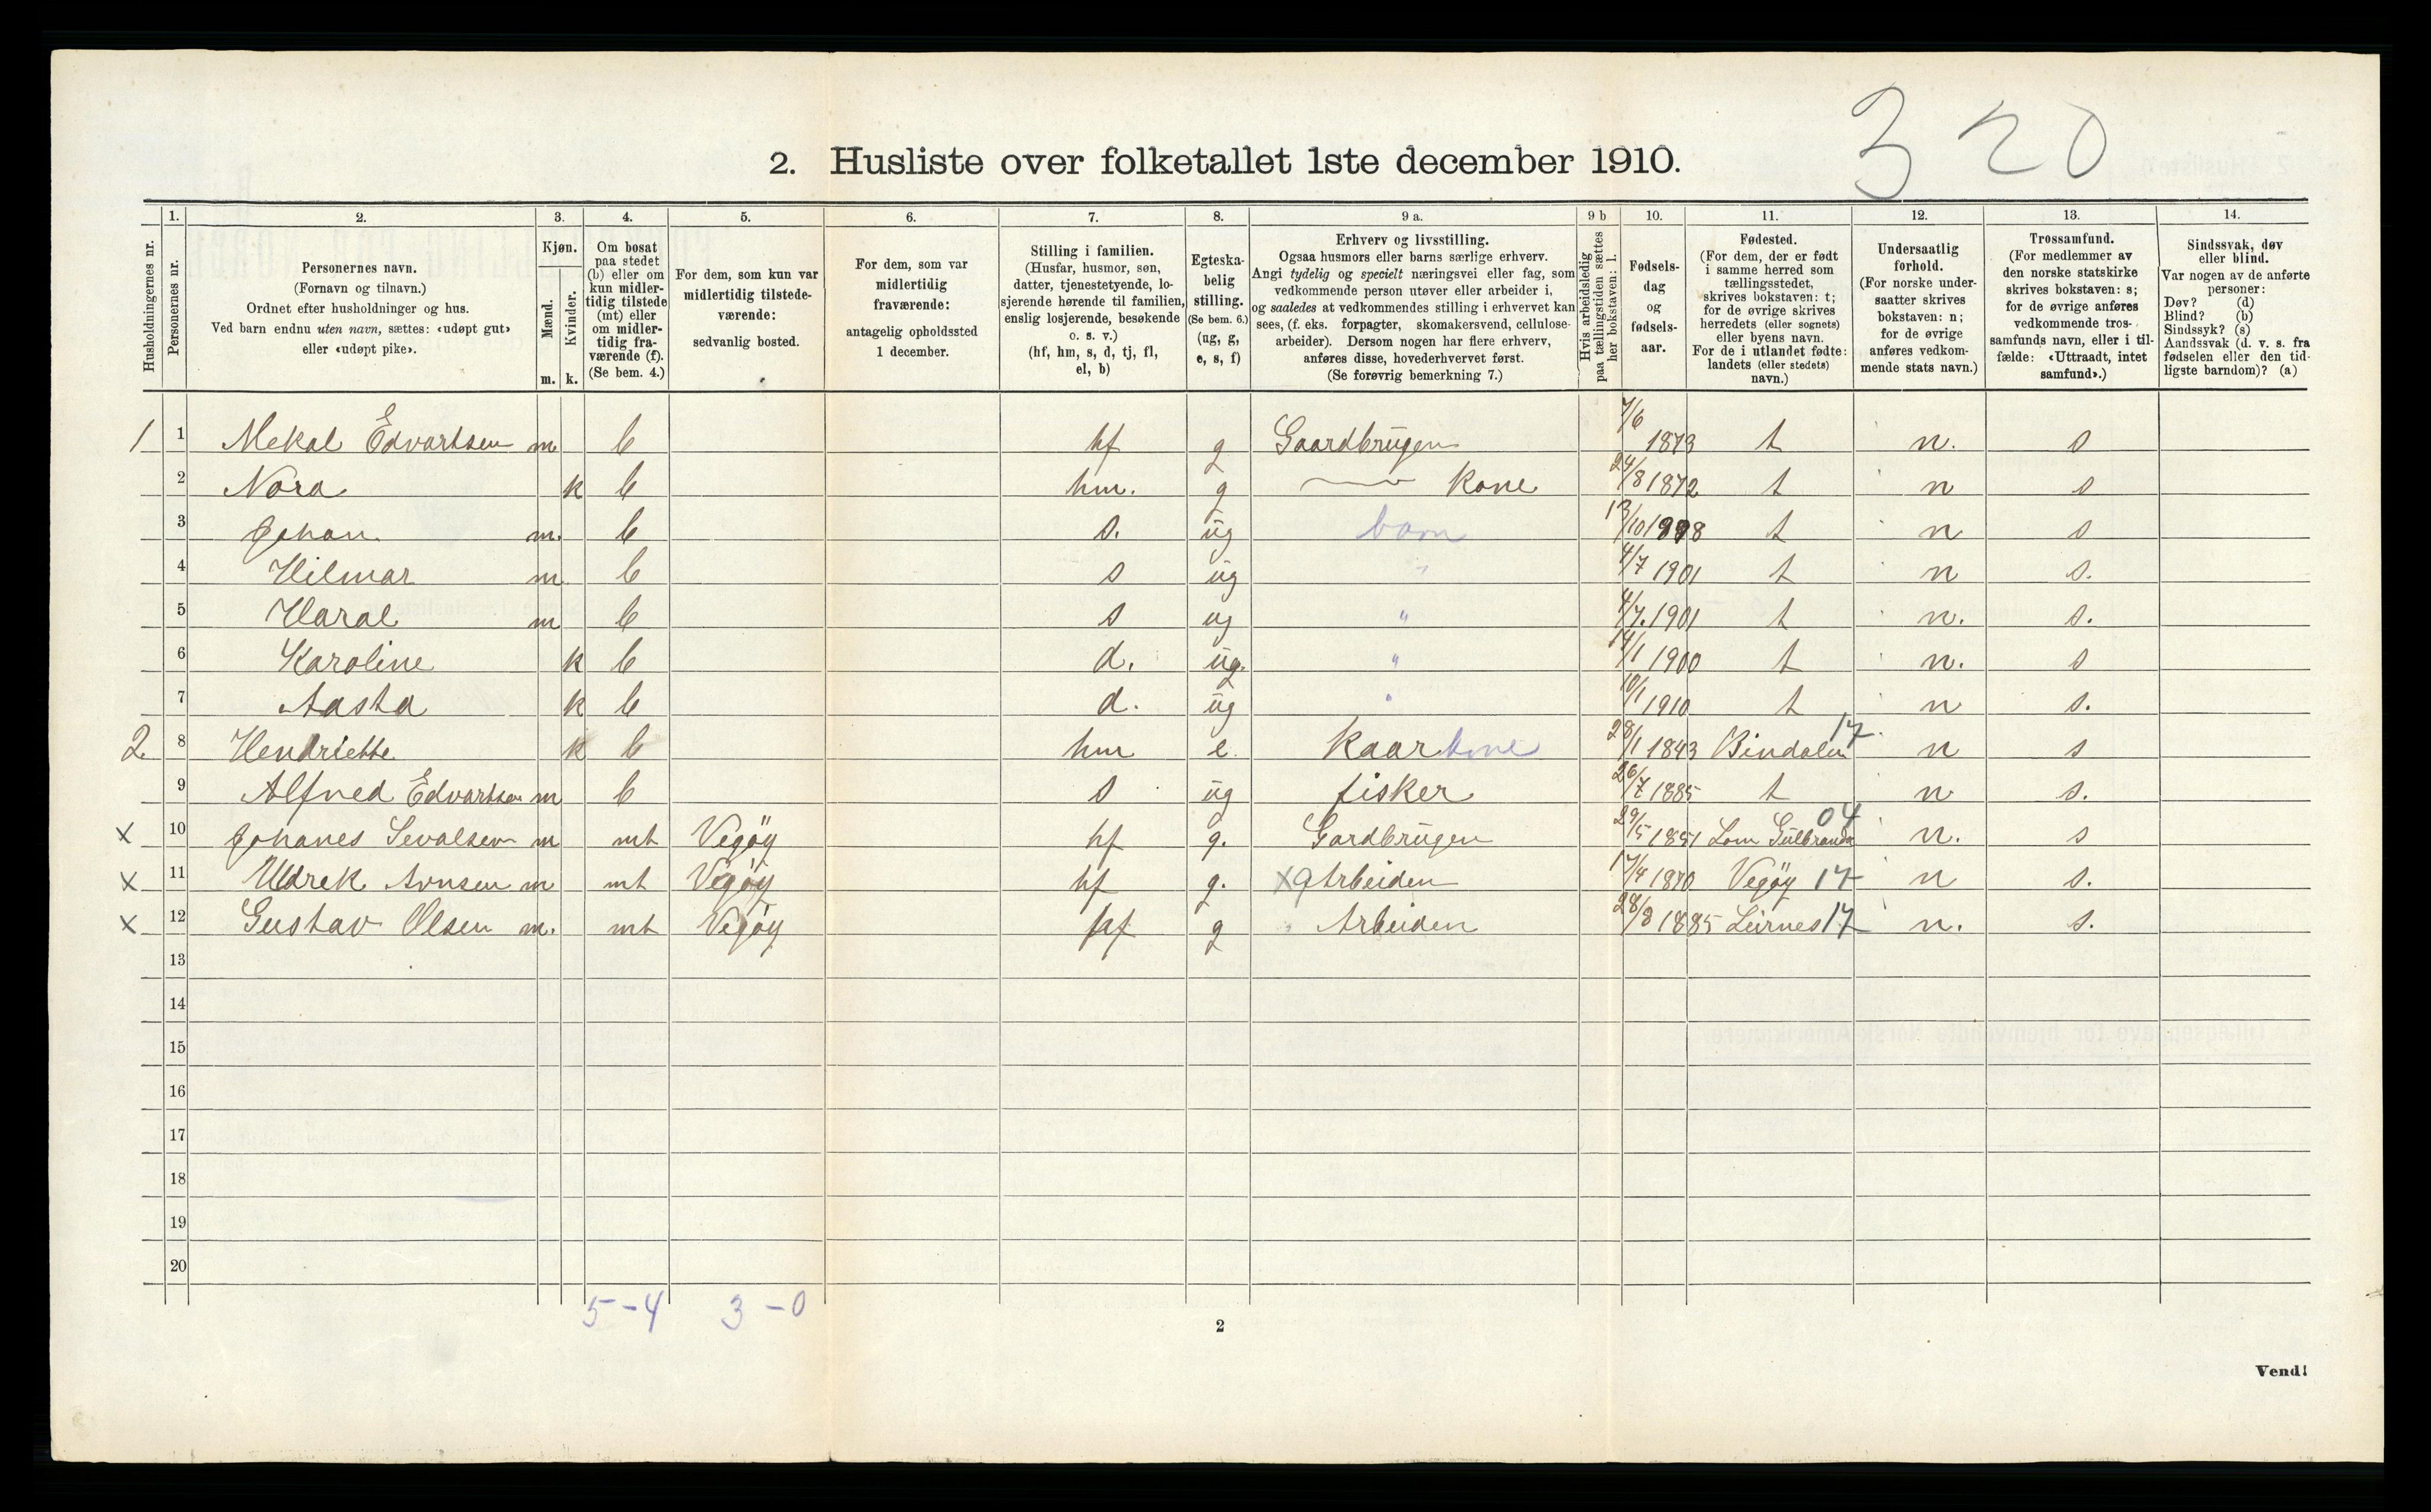 320
2. Husliste over folketallet 1ste december 1910.
Husholdningernes nr.
1. Personernes nr.
2. Personernes navn.
(Fornavn og tilnavn.)
Ordnet efter husholdninger og hus.
Ved barn endnu uten navn, sættes: «udøpt gut»
eller «udøpt pike».
3. Kjøn.
Mænd. m.
Kvinder. k.
4. Om bosat
paa stedet
(b) eller om
kun midler-
tidig tilstede
(mt) eller
om midler-
tidig fra-
værende (f).
(Se bem. 4.)
5. For dem, som kun var
midlertidig tilstede-
værende:
sedvanlig bosted.
6. For dem, som var
midlertidig
fraværende:
antagelig opholdssted
1 december.
7. Stilling i familien.
(Husfar, husmor, søn,
datter, tjenestetyende, lo-
sjerende hørende til familien,
enslig losjerende, besøkende
o. s. v.)
(hf, hm, s, d, tj, fl,
el, b)
8. Egteska-
belig
stilling.
(Se bem. 6.)
(ug, g,
e, s, f)
9 a. Erhverv og livsstilling.
Ogsaa husmors eller barns særlige erhverv.
Angi tydelig og specielt næringsvei eller fag, som
vedkommende person utøver eller arbeider i,
og saaledes at vedkommendes stilling i erhvervet kan
sees, (f. eks. forpagter, skomakersvend, cellulose-
arbeider). Dersom nogen har flere erhverv,
anføres disse, hovederhvervet først.
(Se forøvrig bemerkning 7.)
9 b Hvis arbeidsledig
paa tællingstiden sættes
her bokstaven: l.
10. Fødsels-
dag
og
fødsels-
aar.
11. Fødested.
(For dem, der er født
i samme herred som
tællingsstedet,
skrives bokstaven: t;
for de øvrige skrives
herredets (eller sognets)
eller byens navn.
For de i utlandet fødte:
landets (eller stedets)
navn.)
12. Undersaatlig
forhold.
(For norske under-
saatter skrives
bokstaven: n;
for de øvrige
anføres vedkom-
mende stats navn.)
13. Trossamfund.
(For medlemmer av
den norske statskirke
skrives bokstaven: s;
for de øvrige anføres
vedkommende tros-
samfunds navn, eller i til-
fælde: «Uttraadt, intet
samfund».)
14. Sindssvak, døv
eller blind.
Var nogen av de anførte
personer:
Døv? (d)
Blind? (b)
Sindssyk? (s)
Aandssvak (d. v. s. fra
fødselen eller den tid-
ligste barndom)? (a)
1 1 Mekal Edvartsen m b hf g Gaardbrugen 7/6 1873 t n. s
2 Nora k b hm. g — Kone 24/8 1872 t n s
3 Johan m. b s. ug barn 13/10 t n s
4 Hilmar m b s ug " 4/7 1901 t n s.
5 Haral m b s ug " 4/7. 1901 t n. s.
6 Karoline k b d. ug. " 14/1 1900 t n. s
7 Aasta k b d. ug " 10/1 1910 t n s.
2 8 Hendriette k b hm e. Kaarkone 28/1 1843 Bindalen 17. n s
9 Alfred Edvartsen m b s ug fisker 26/7 1885 t n s.
x 10 Johanes Sevalsen m mt Vegöy hf g. Gardbrugen 29/5 1851 Lom Gulbrands 04 n. s
x 11 Arnsen m mt Vegöy hf g. x g Arbeiden 17/4 1870 Vegöy 17 n s.
x 12 Gustav Olsen m. mt Vegöy hf g Arbeiden 28/8 1885 Leirnes 17 n. s.
13
14
15
16
17
18
19
20
5-4 3-0
2
Vend!